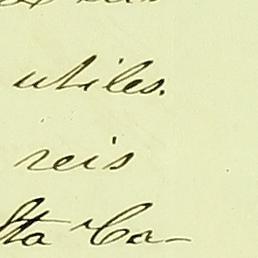 utiles.
reis
sta Ca-